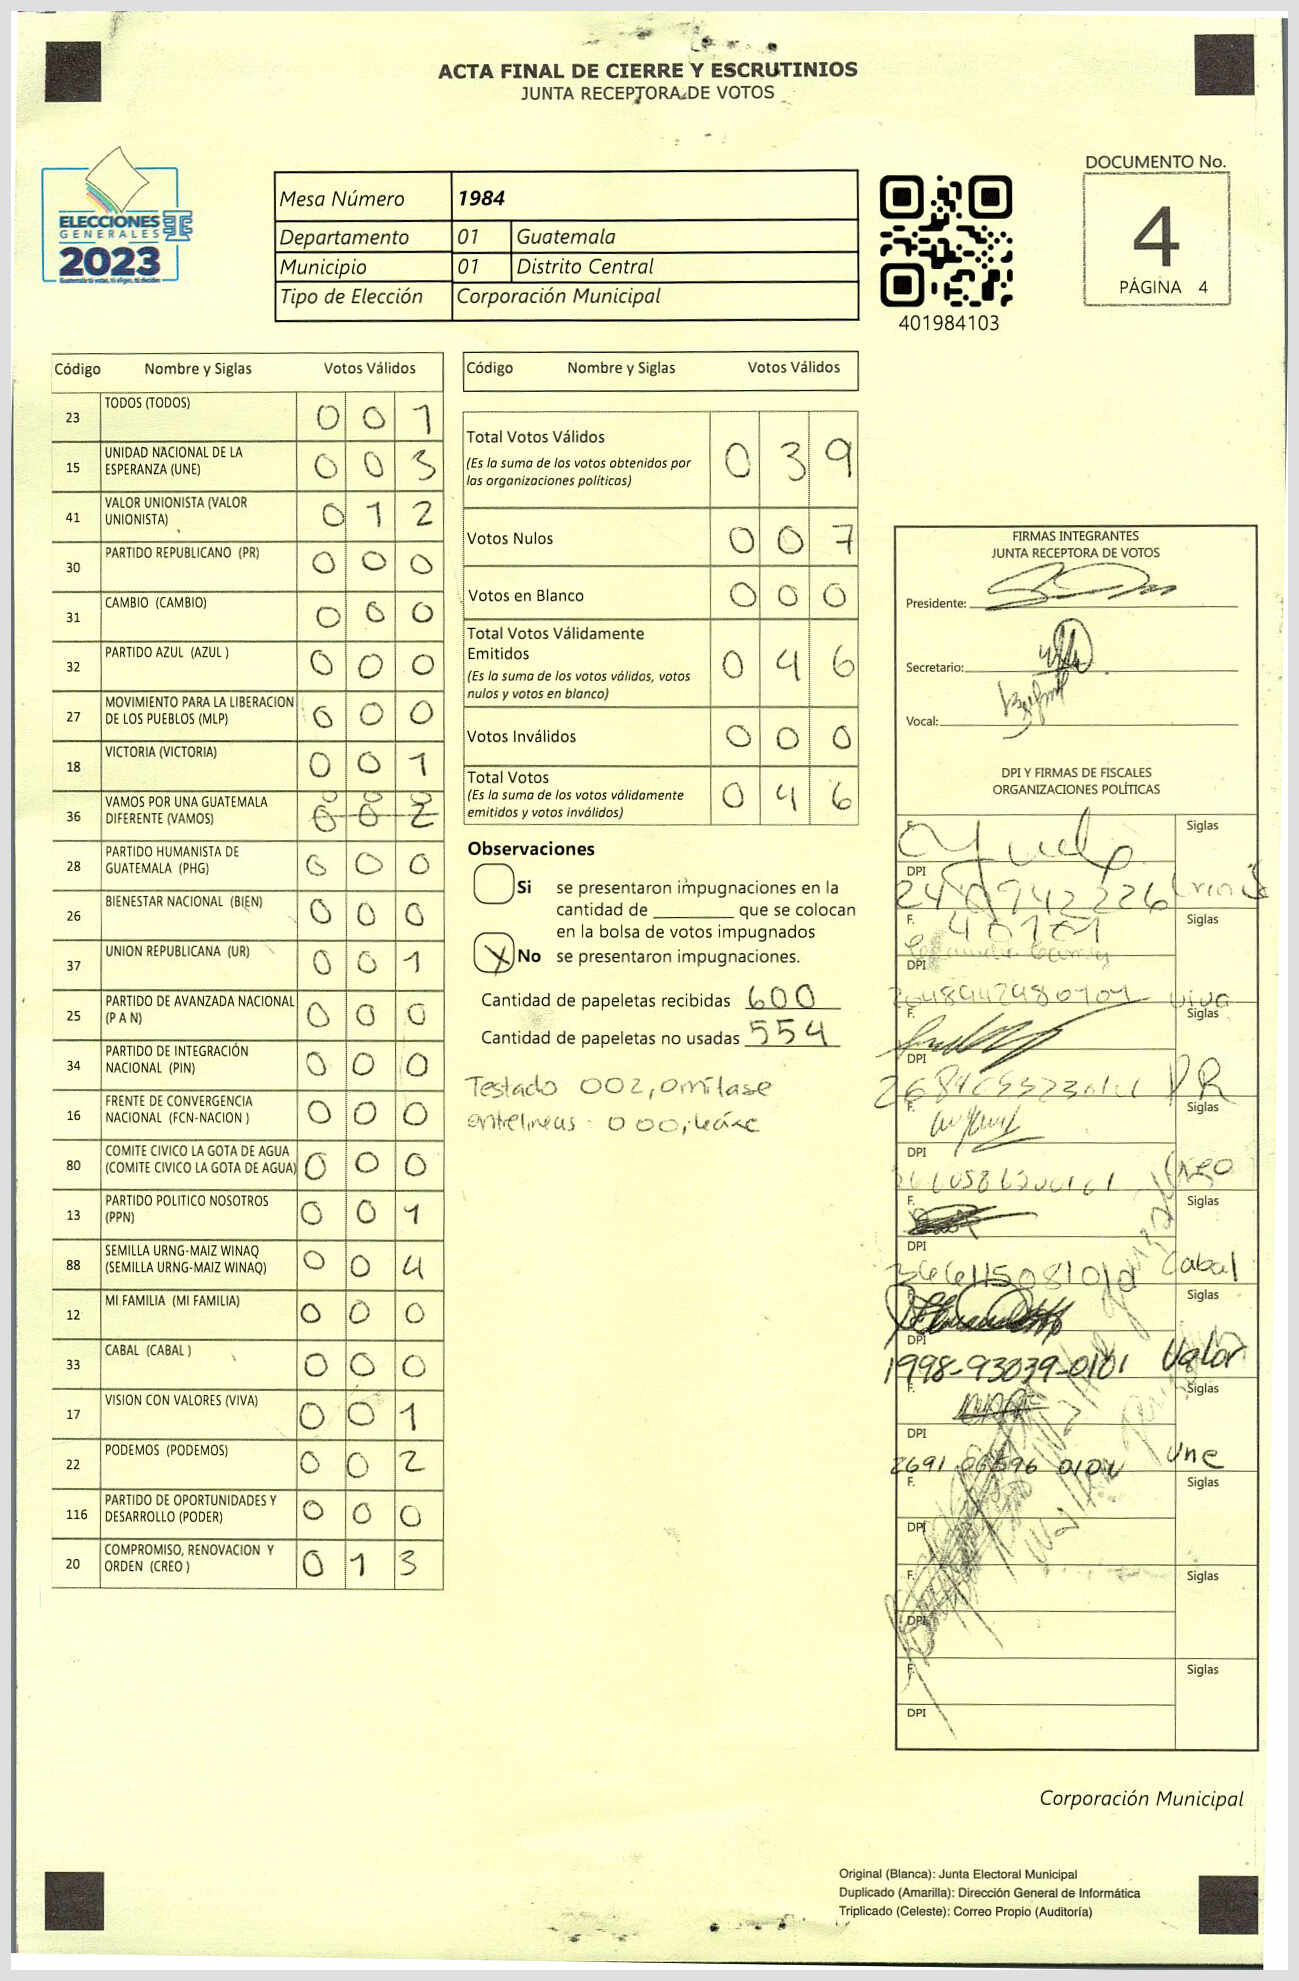 ACTA FINAL DE CIERRE Y ESCRUTINIOS
JUNTA RECEPTORA DE VOTOS
ELECCIONES
GENERALES
2023
Mesa Número 1984
Departamento 01 Guatemala
Municipio 01 Distrito Central
Tipo de Elección Corporación Municipal
401984103
DOCUMENTO No.
4
PÁGINA 4
Código Nombre y Siglas Votos Válidos
23 TODOS (TODOS) 0 0 1
15 UNIDAD NACIONAL DE LA
ESPERANZA (UNE) 0 0 3
41 VALOR UNIONISTA (VALOR
UNIONISTA) 0 1 2
30 PARTIDO REPUBLICANO (PR) 0 0 0
31 CAMBIO (CAMBIO) 0 0 0
32 PARTIDO AZUL (AZUL ) 0 0 0
27 MOVIMIENTO PARA LA LIBERACION
DE LOS PUEBLOS (MLP) 0 0 0
18 VICTORIA (VICTORIA) 0 0 1
36 VAMOS POR UNA GUATEMALA
DIFERENTE (VAMOS) 0 0 0
0 0 2
28 PARTIDO HUMANISTA DE
GUATEMALA (PHG) 0 0 0
26 BIENESTAR NACIONAL (BIEN) 0 0 0
37 UNION REPUBLICANA (UR) 0 0 1
25 PARTIDO DE AVANZADA NACIONAL
(P A N) 0 0 0
34 PARTIDO DE INTEGRACIÓN
NACIONAL (PIN) 0 0 0
16 FRENTE DE CONVERGENCIA
NACIONAL (FCN-NACION ) 0 0 0
80 COMITE CIVICO LA GOTA DE AGUA
(COMITE CIVICO LA GOTA DE AGUA) 0 0 0
13 PARTIDO POLITICO NOSOTROS
(PPN) 0 0 1
88 SEMILLA URNG-MAIZ WINAQ
(SEMILLA URNG-MAIZ WINAQ) 0 0 4
12 MI FAMILIA (MI FAMILIA) 0 0 0
33 CABAL (CABAL ) 0 0 0
17 VISION CON VALORES (VIVA) 0 0 1
22 PODEMOS (PODEMOS) 0 0 2
116 PARTIDO DE OPORTUNIDADES Y
DESARROLLO (PODER) 0 0 0
20 COMPROMISO, RENOVACION Y
ORDEN (CREO ) 0 1 3
Código Nombre y Siglas Votos Válidos
Total Votos Válidos 0 3 9
(Es la suma de los votos obtenidos por
las organizaciones políticas)
Votos Nulos 0 0 7
Votos en Blanco 0 0 0
Total Votos Válidamente
Emitidos 0 4 6
(Es la suma de los votos válidos, votos
nulos y votos en blanco)
Votos Inválidos 0 0 0
Total Votos 0 4 6
(Es la suma de los votos válidamente
emitidos y votos inválidos)
Observaciones
Si se presentaron impugnaciones en la
cantidad de ________ que se colocan
en la bolsa de votos impugnados
X No se presentaron impugnaciones.
Cantidad de papeletas recibidas 600
Cantidad de papeletas no usadas 554
Testado 002, omitase
entrelineas: 000, leáse
FIRMAS INTEGRANTES
JUNTA RECEPTORA DE VOTOS
Presidente:
Secretario:
Vocal:
DPI Y FIRMAS DE FISCALES
ORGANIZACIONES POLÍTICAS
F. Siglas
DPI
F. Siglas
40101
DPI
viva
F. Siglas
DPI
PR
F. Siglas
DPI
Creo
F. Siglas
DPI
Cabal
F. Siglas
DPI
1998-93039-0101 Valor
F. Siglas
DPI
Une
F. Siglas
DPI
F. Siglas
DPI
F. Siglas
DPI
Corporación Municipal
Original (Blanca): Junta Electoral Municipal
Duplicado (Amarilla): Dirección General de Informática
Triplicado (Celeste): Correo Propio (Auditoría)